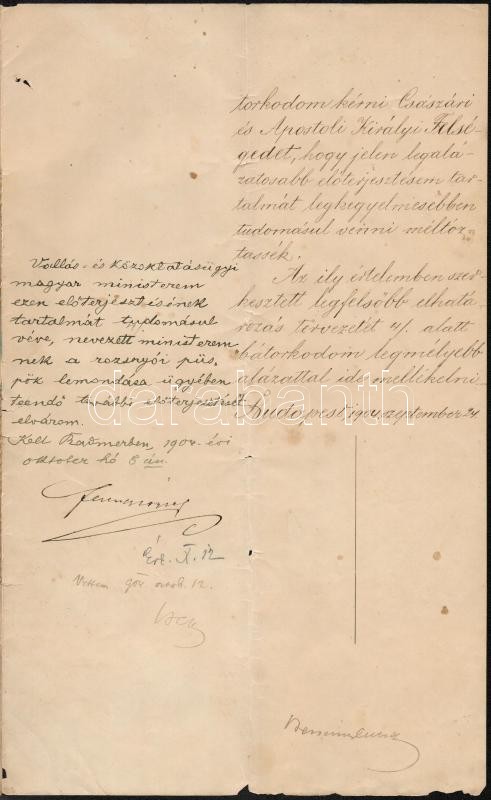 torkodom kérni Császári
és Apostoli Királyi Felsé-
gedet, hogy jelen legalá-
zatosabb előterjesztésem tar-
talmát legkegyelmesebben
tudomásul venni méltóz-
tassék.
Az ily értelemben szer-
kesztett legfelsőbb elhatá-
rozás tervezetét ./. alatt
bátorkodom legmélyebb
alázattal ide mellékelni.
Budapest, 1904, szeptember 24.
Vallás- és közoktatásügyi
magyar ministerem
ezen előterjesztésének
tartalmát tudomásul
véve, nevezett ministerem-
nek a rozsnyói püs-
pök lemondása ügyében
teendő további előterjesztését
elvárom.
Kelt Radmerben, 1904. évi
október hó 8 án.
Ferencz József
Érk. X. 12
Vettem 904 octob. 12.
Berzeviczy
darabanth